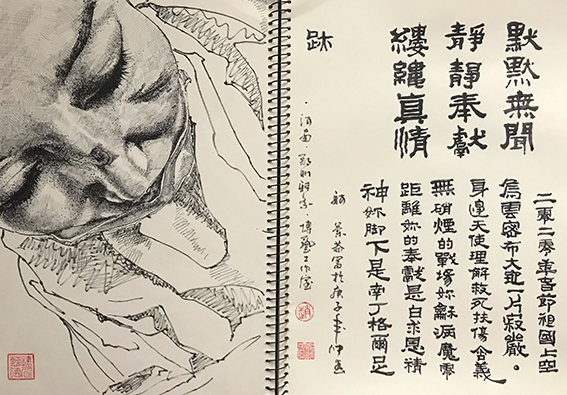 默默無聞
靜靜奉獻
縷縷真情
二零二零年春節祖國上空
烏雲密布大地一片寂嚴。
身邊天使理解救死扶傷含義
無硝煙的戰場妳龢病魔零
距離妳的奉獻是白求恩精
神妳脚下是南丁格爾足
跡
河南·鄭州 博藝工作室
於庚子